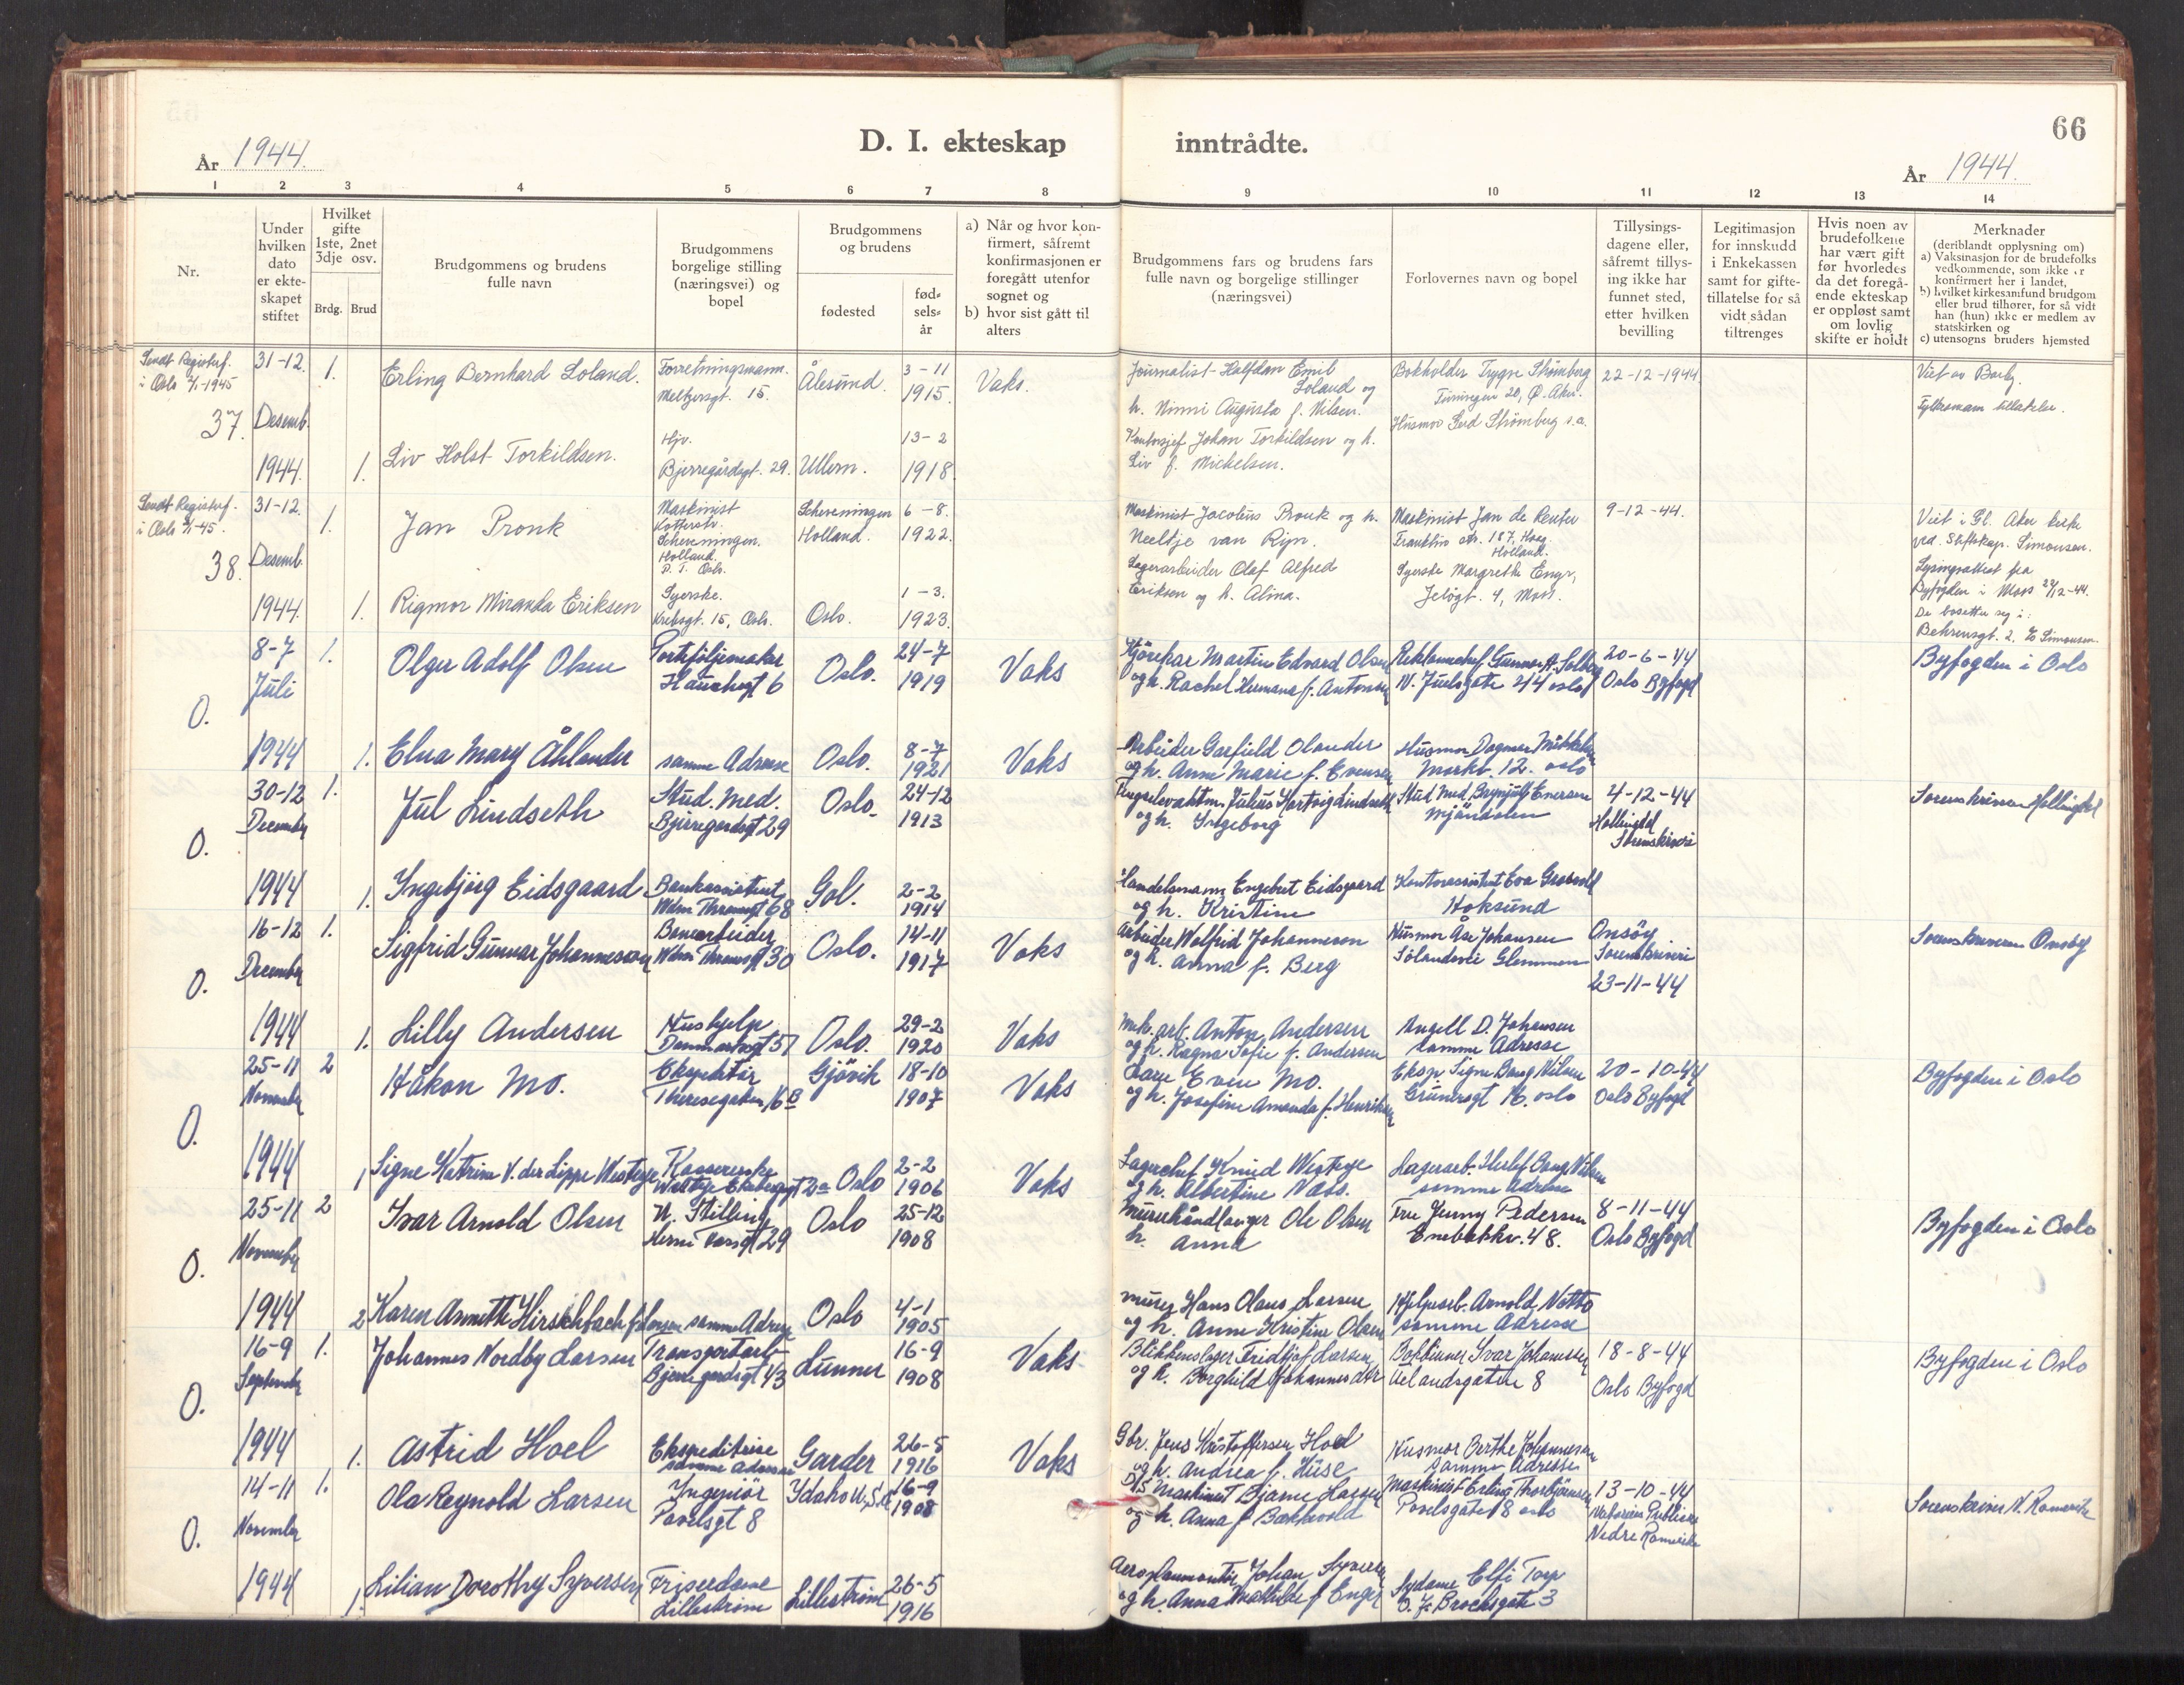 66
D. I. ekteskap inntrådte.
År 1944.
År 1944.
1 2 3 4 5 6 7 8 9 10 11 12 13 14
Nr.
Under hvilken dato er ekteskapet stiftet
Hvilket gifte 1ste, 2net 3dje osv.
Brdg. Brud
Brudgommens og brudens fulle navn
Brudgommens borgelige stilling (næringsvei) og bopel
Brudgommens og brudens
fødested
fødselsår
a) Når og hvor konfirmert, såfremt konfirmasjonen er foregått utenfor sognet og
b) hvor sist gått til alters
Brudgommens fars og brudens fars fulle navn og borgelige stillinger (næringsvei)
Forlovernes navn og bopel
Tillysingsdagene eller, såfremt tillysing ikke har funnet sted, etter hvilken bevilling
Legitimasjon for innskudd i Enkekassen samt for giftetillatelse for så vidt sådan tiltrenges
Hvis noen av brudefolkene har vært gift før hvorledes da det foregående ekteskap er oppløst samt om lovlig skifte er holdt
Merknader
(deriblandt opplysning om)
a) Vaksinasjon for de brudefolks vedkommende, som ikke er konfirmert her i landet,
b) hvilket kirkesamfund brudgom eller brud tilhører, for så vidt han (hun) ikke er medlem av statskirken og
c) utensogns bruders hjemsted
Sendt Registerf.
i Oslo 2/1-1945
37.
31-12.
Desemb.
1944.
1.
Erling Bernhard Loland.
Forretningsmann.
Meltzersgt. 15.
Ålesund.
3-11
1915.
Vaks.
Journalist Halfdan Emil
Loland og
h. Ninni Augusta f. Nilsen.
Bokholder Trygve Strømberg
20, Ø. Aker.
22-12-1944
Viet av Borg.
Fylkesmann tillatelse.
1.
Liv Holst Torkildsen.
Hjv.
Bjerregårdsgt. 29.
Ullern.
13-2
1918.
Kontorsjef Johan Torkildsen og h.
Liv f. Michelsen.
Husmor Gerd Strømberg s.a.
Sendt Registerf.
i Oslo 2/1-45.
38.
31-12.
Desemb.
1944.
1.
Jan Pronk
Maskinist
Scheveningen.
Holland.
P. T. Oslo.
Scheveningen
Holland.
6-8.
1922.
Maskinist Jacobus Pronk og h.
Neeltje van Rijn.
Maskinist Jan de Reuter
Franklin str. 187, Haag.
Holland.
9-12-44.
Viet i Gl. Aker kirke
ved Stiftskap. Simonsen.
Lysingsattest fra
Byfogden i Moss 29/12-44.
De bosetter seg i:
Behrensgt. 2, c/o Simonsen.
1.
Rigmor Miranda Eriksen
Syerske.
Krebsgt. 15, Oslo.
Oslo.
1-3.
1923.
Lagerarbeider Olaf Alfred
Eriksen og h. Alina.
Syerske Margrethe Enger,
Jeløgt. 4, Moss.
O.
8-7
Juli
1944
1.
Olger Adolf Olsen
Porteføljemaker
Hausmgt 6
Oslo.
24-7
1919
Vaks
Kjörekar Martin Edvard Olsen
og h. Rachel Hermana f. Antonsen
Reklamechef Gunnar A. Solberg
N. Juelsgate 44 oslo
20-6-44
Oslo Byfogd
Byfogden i Oslo
1.
Elna Mary Åhlander
samme Adresse
Oslo.
8-7
1921
Vaks
Arbeider Garfield Olander
og h. Anne Marie f. Evensen
Husmor Dagmar Mikkelsen
Markv. 12. oslo
O.
30-12
December
1944
1.
Jul Lindseth
Stud. Med.
Bjerregaardsgt 29
Oslo.
24-12
1913
Fengselsvaktm. Julius Hartvig Lindseth
og h. Ingeborg
Stud Med. Brynjulf Enersen
Mjøndalen
4-12-44
Hallingdal
Sorenskriveri
Sorenskriveren Hallingdal
1.
Ingebjörg Eidsgaard
Bankassistent
Wdm Thranesgt 68
Gol.
2-2
1914
Handelsmann Engebret Eidsgaard
og h. Kristine
Kontorassistent Eva Grøsvold
Hoksund
O.
16-12
December
1944
1.
Sigfrid Gunnar Johannesson
Wdm Thranesgt 30
Oslo.
14-11
1917
Vaks
Arbeider Wolfrid Johannesson
og h. Anna f. Berg
Husmor Åse Johansen
Sølandsvei Glemmen
Onsöy
Sorenskriveri
23-11-44
Sorenskriveren Onsöy
1.
Lilly Andersen
Hushjelp
Danmarksgt 51
Oslo.
29-2
1920
Vaks
Mek. arb. Anton Andersen
og h. Ragna Sofie f. Andersen
Angell D. Johansen
samme Adresse
O.
25-11
November
1944
2
Håkon Mo.
Ekspeditör
Theresegaten 16 B
Gjövik
18-10
1907
Vaks
Even Mo.
og h. Josefine Amanda f. Henriksen
Eksp Signe Bang Nilsen
Grünersgt 16. oslo
20-10-44
Oslo Byfogd
Byfogden i Oslo
1
Signe Katrine V. der Lippe Westbye
Kassererske
Westbye Ekebergsgt 2a
Oslo
2-2
1906
Vaks
Lagerchef Knud Westbye
og h. Albertine Næss.
Lagerarb. Herlef Bang Nilsen
samme Adresse
O.
25-11
November
1944
2
Ivar Arnold Olsen
U. Stilling
29
Oslo
25-12
1908
Murerhåndlanger Ole Olsen
h. Anna
Fru Jenny Pedersen
Enebakkv. 48.
8-11-44
Oslo Byfogd
Byfogden i Oslo
2
Karen Annette Hirschbach f. Larsen
samme Adresse
Oslo
4-1
1905
Murer Hans Olaus Larsen
og h. Anne Kristine Olsen
Hjelpearb. Arnold Netto
samme Adresse
O.
16-9
September
1944
1.
Johannes Nordby Larsen
Transportarb
Bjerregardsgt 43
Lunner
16-9
1908
Vaks
Blikkenslager Fridtjof Larsen
og h. Borghild Johannesdtr
Bokbinner Ivar Johannessen
Uelandsgaten 8
18-8-44
Oslo Byfogd
Byfogden i Oslo
1.
Astrid Hoel
Ekspeditrise
samme Adresse
Garder
26-5
1916
Vaks
Gbr. Jens Kristoffersen Hoel
og h. Andrea f. Huse
Husmor Berthe Johannessen
samme Adresse
O.
14-11
November
1944
1.
Ola Reynold Larsen
Ingeniör
Pavelsgt 8
Idaho U.S.A.
16-9
1908
Maskinist Bjarne Larsen
og h. Anna f. Bakkevold
Maskinist Erling Thorbjörnsen
Pavelsgaten 8 oslo
13-10-44
Notarius Publicus
Nedre Romerike
Sorenskriver N. Romerike
1.
Lilian Dorothy Syversen
Friserdame
Lilleström
Lilleström
26-5
1916
Johan Syversen
og h. Anna Mathilde f. Enger
Sydame Elfi Torp
O. J. Brochsgate 3